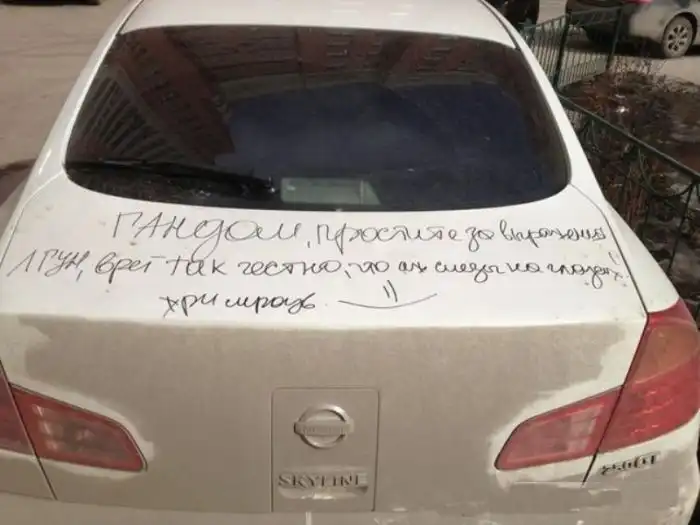 ГАНДОН, простите за выражения
ЛГУН, врет так честно, что аж слезы на глазах!
три мразь
NISSAN
SKYLINE
250GT